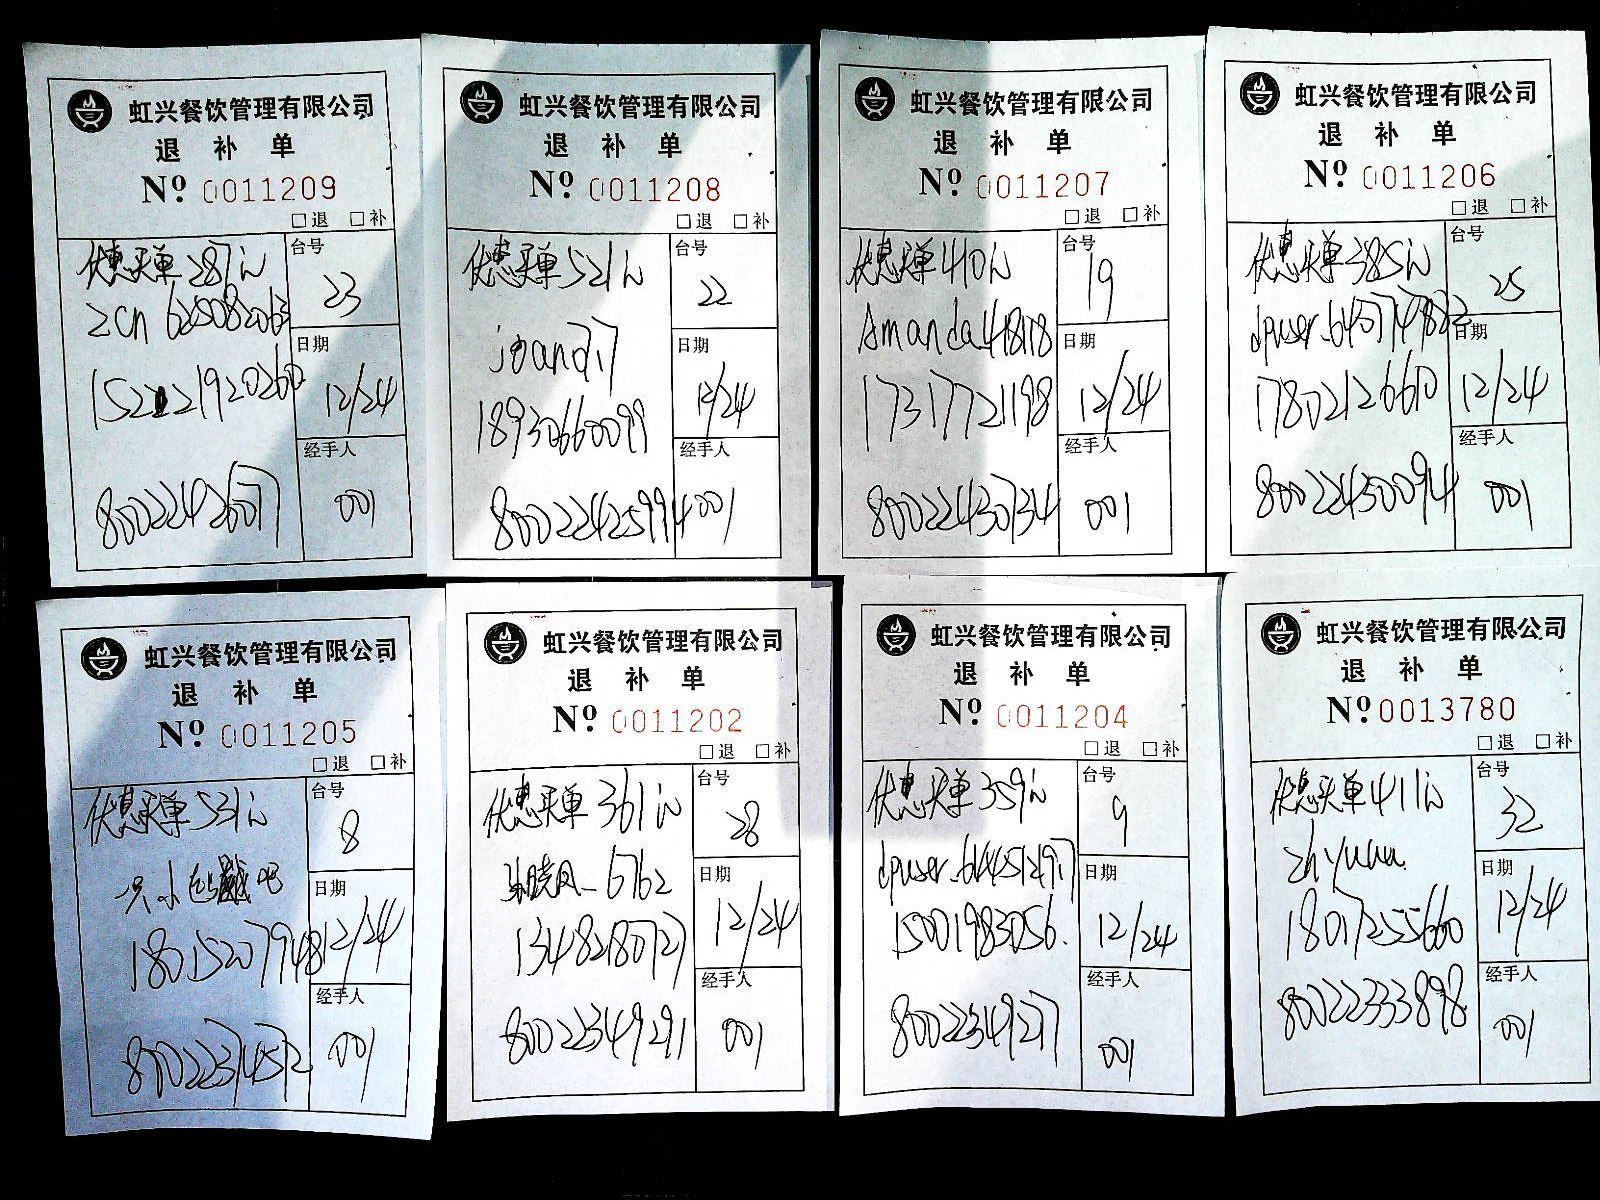 虹兴餐饮管理有限公司
退 补 单
Nº 0011209
□退 □补
优惠买单287元
zcn 625082063
15221920260
80022426077
台号
23
日期
12/24
经手人
001
虹兴餐饮管理有限公司
退 补 单
Nº 0011208
□退 □补
优惠买单521元
18930660099
80022425994
台号
22
日期
12/24
经手人
001
虹兴餐饮管理有限公司
退 补 单
Nº 0011207
□退 □补
优惠买单410元
17317721198
80022430734
台号
19
日期
12/24
经手人
001
虹兴餐饮管理有限公司
退 补 单
Nº 0011206
□退 □补
优惠买单385元
17802126610
80022430094
台号
25
日期
12/24
经手人
001
虹兴餐饮管理有限公司
退 补 单
Nº 0011205
□退 □补
优惠买单531元
18015207948
台号
8
日期
12/24
经手人
001
虹兴餐饮管理有限公司
退 补 单
Nº 0011202
□退 □补
优惠买单361元
13482180727
80022349291
台号
28
日期
12/24
经手人
001
虹兴餐饮管理有限公司
退 补 单
Nº 0011204
□退 □补
优惠买单359元
15001983056.
80022349277
台号
9
日期
12/24
经手人
001
虹兴餐饮管理有限公司
退 补 单
Nº 0013780
□退 □补
优惠买单411元
18017255660
80022333898
台号
32
日期
12/24
经手人
001